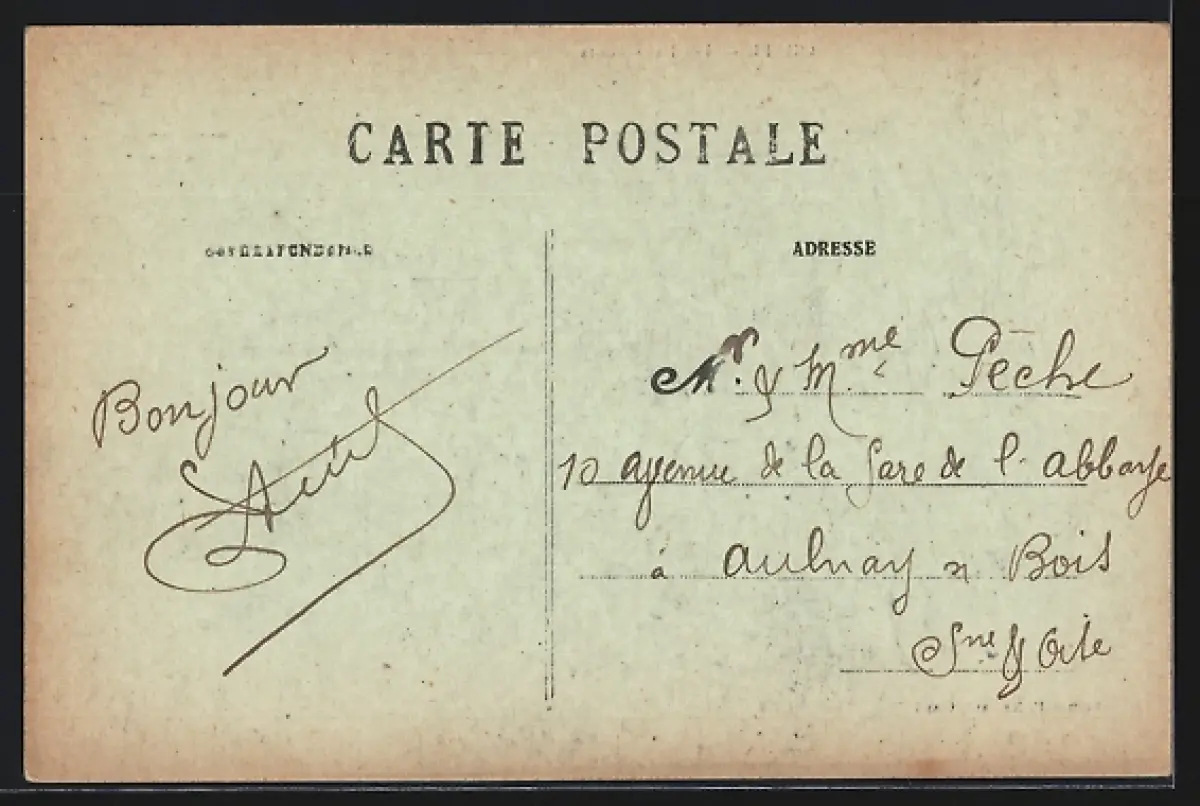 CARTE POSTALE
CORRESPONDANCE
Bonjour
ADRESSE
Mr. & Mme Pèche
10 avenue de la Gare de l'abbaye
à Aulnay s Bois
Sne & Oise